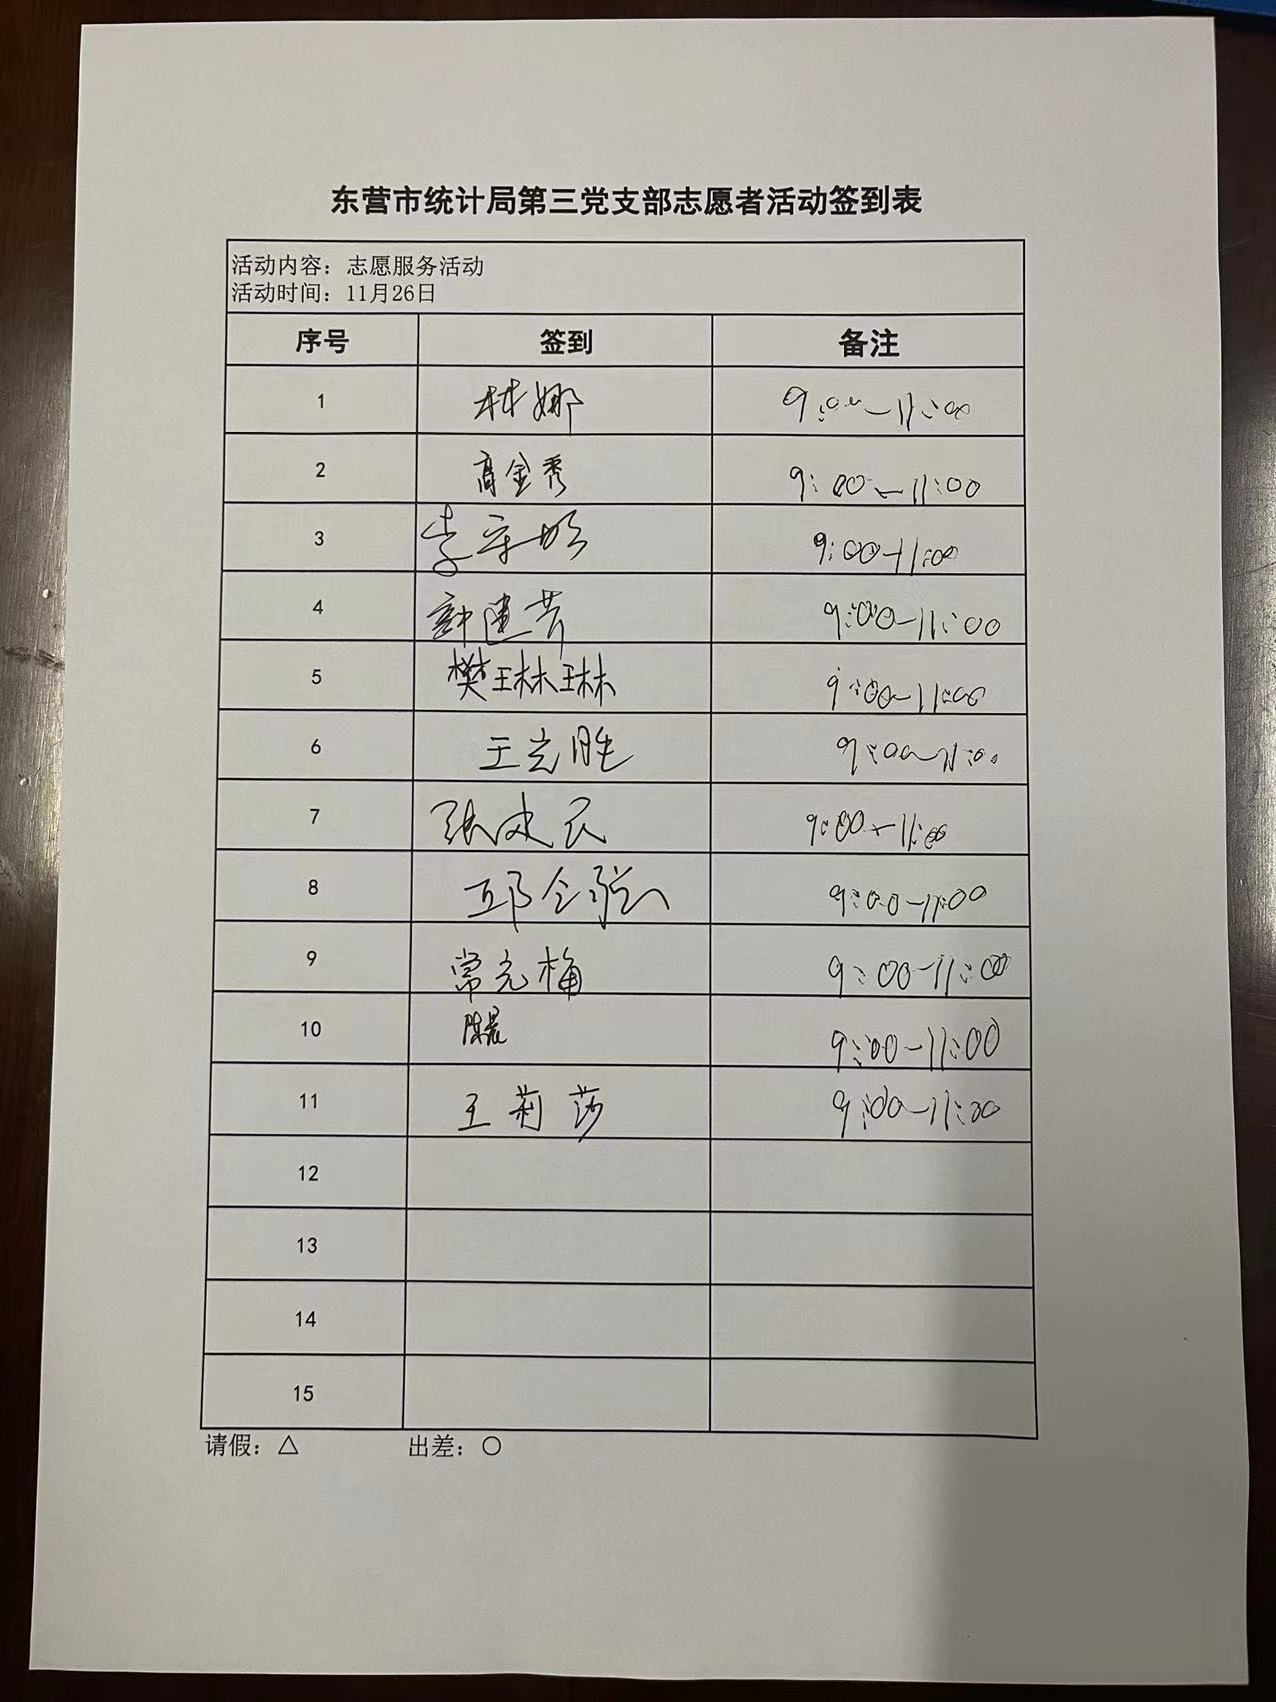 东营市统计局第三党支部志愿者活动签到表
活动内容：志愿服务活动
活动时间：11月26日
序号 签到 备注
1 林娜 9:00-11:00
2 高金秀 9:00-11:00
3 李 9:00-11:00
4 建芳 9:00-11:00
5 樊琳琳 9:00-11:00
6 王立胜 9:00-11:00
7 张建民 9:00-11:00
8 邱 9:00-11:00
9 常克梅 9:00-11:00
10 陈晨 9:00-11:00
11 王莉莎 9:00-11:00
12
13
14
15
请假：△ 出差：○